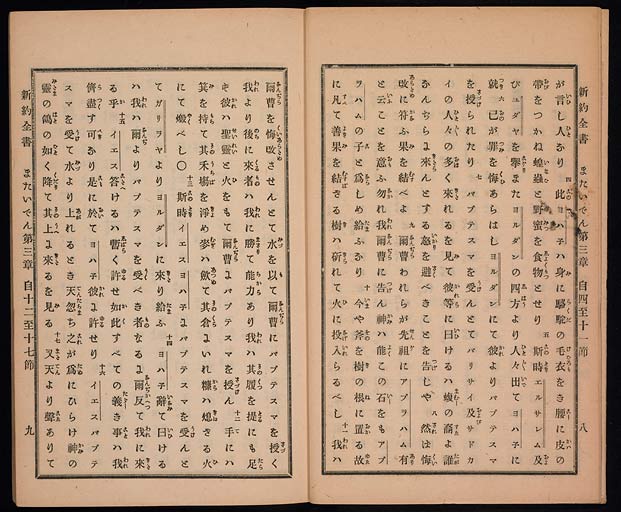 新約全書　またいでん第三章　自四至十一節　八
が言し人なり 四 此ヨハ子ハ身に駱駝の毛衣をき腰に皮の
帶をつかね蝗蟲と野蜜を食物とせり 五 斯時エルサレム及
びユダヤを擧またヨルダンの四方より人々出てヨハ子に
就 六 己が罪を悔あらはしヨルダンにて彼よりバプテスマ
を授られたり 七 バプテスマを受んとてパリサイ及サドカ
イの人々の多く來れるを見て彼等に曰けるハ蝮の裔よ誰
なんぢらに來んとする怒を避べきことを告しや 八 然ば悔
改に符ふ果を結べよ 九 爾曹われらが先祖にアブラハム有
と云ことを意ふ勿れ我爾曹に告ん神ハ能この石をもアブ
ラハムの子と爲しめ給ふなり 十 今や斧を樹の根に置る故
に凡て善果を結ざる樹ハ斫れて火に投入らるべし 十一 我ハ
爾曹を悔改させんとて水を以て爾曹にバプテスマを授く
我より後に來者ハ我に勝て能力あり我ハ其履を提にも足
ず彼ハ聖靈と火をもて爾曹にバプテスマを授ん 十二 手にハ
箕を持て其禾塲を淨め麥ハ斂て其倉にいれ糠ハ熄ざる火
にて燬べし〇 十三 斯時イエスヨハ子にバプテスマを受んと
てガリラヤよりヨルダンに來り給ふ 十四 ヨハ子辭て曰ける
ハ我ハ爾よりバプテスマを受べき者なるに爾反て我に來
る乎 十五 イエス答けるハ暫く許せ如此すべての義き事ハ我
儕盡す可なり是に於てヨハ子彼に許せり 十六 イエスバプテ
スマを受て水より上れるとき天忽ち之が爲にひらけ神の
靈の鴿の如く降て其上に來るを見る 十七 又天より聲ありて
新約全書　またいでん第三章　自十二至十七節　九